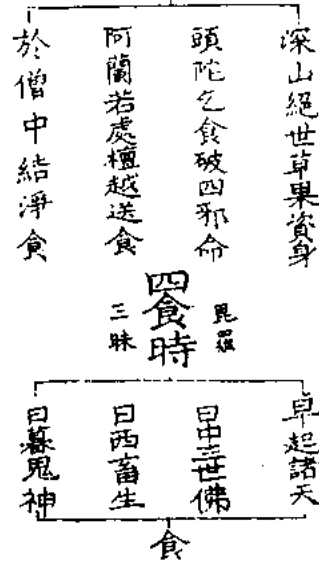 深山絕世草果資身
頭陀乞食破四邪命
阿蘭若處檀越送食
於僧中結淨食
毘羅
三昧
四食時
早起諸天
日中三世佛
日西畜生
日暮鬼神
食